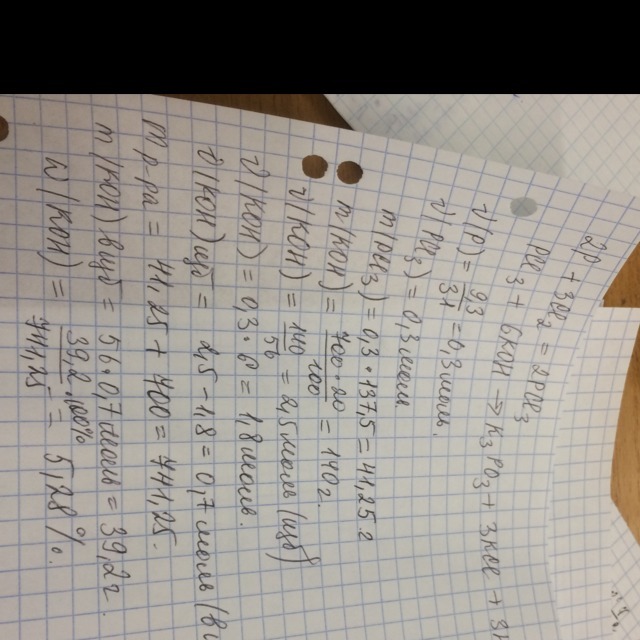 2P + 3Cl₂ = 2PCl₃
PCl₃ + 6KOH → K₃PO₃ + 3KCl + 3H
ν(P) = 9,3/31 = 0,3 моль.
ν(PCl₃) = 0,3 моль
m(PCl₃) = 0,3 · 137,5 = 41,25 г
m(KOH) = = 140 г.
ν(KOH) = 140/56 = 2,5 моль (изб)
ν(KOH) = 0,3 · 6 = 1,8 моль.
ν(KOH) изб = 2,5 - 1,8 = 0,7 моль (в
m р-ра = 41,25 + 400 = 441,25.
m(KOH) изб = 56 · 0,7 моль = 39,2 г.
ω(KOH) = 39,2 · 100%/441,25 = %.